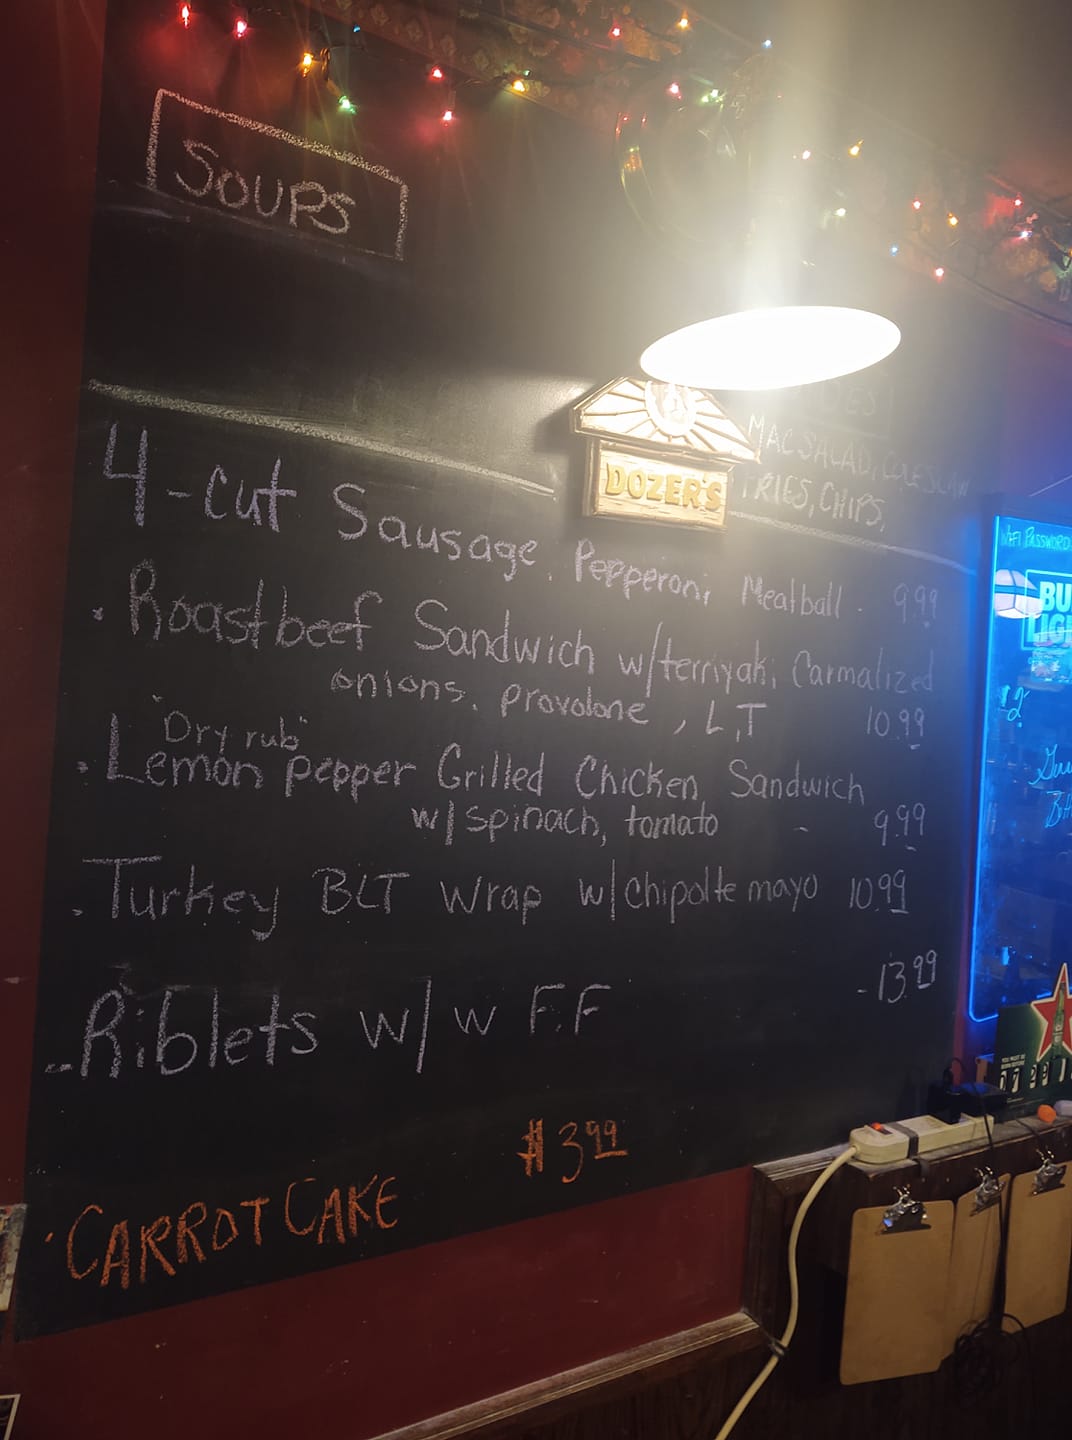 SOUPS
MAC SALAD, COLESLAW
FRIES, CHIPS,
DOZER'S
4-cut Sausage, Pepperoni Meatball - 9.99
. Roastbeef Sandwich w/terriyaki Carmalized
onions, provolone, L,T 10.99
"Dry rub"
. Lemon pepper Grilled Chicken Sandwich
w/spinach, tomato - 9.99
. Turkey BLT Wrap w/chipolte mayo 10.99
- Riblets w/ w F.F - 13.99
. CARROT CAKE $3.99
WiFi PASSWORD
BU
LIG